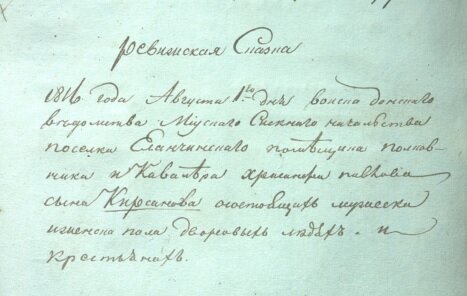 Ревижская Сказка
1816 года Августа 1го дня войска донскаго
ведомства Миускаго Сыскнаго начальства
поселка Еланчинскаго помѣщика полков-
ника и Кавалѣра хрисанфа павлова
сына Кирсанова о состоящихъ мужеска
и женска пола дворовыхъ людѣхъ и
крестьянахъ.